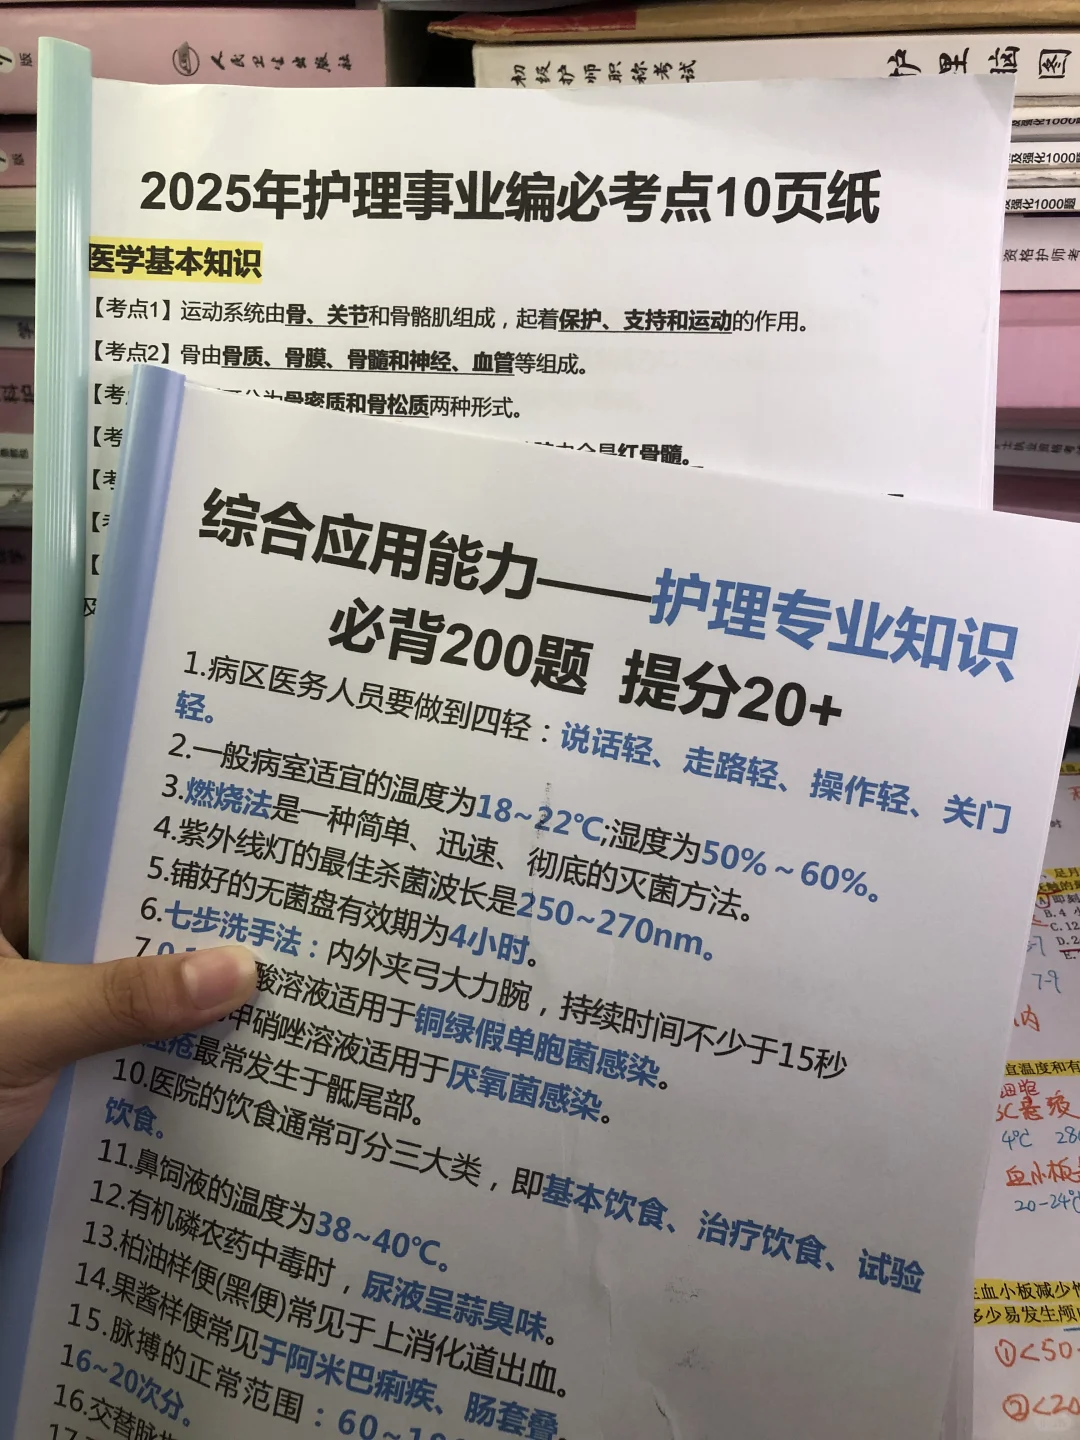 人民卫生出版社
初级护师职称考试
护理脑图
强化1000题
强化1000题
资格护师考
2025年护理事业编必考点10页纸
医学基本知识
【考点1】运动系统由骨、关节和骨骼肌组成，起着保护、支持和运动的作用。
【考点2】骨由骨质、骨膜、骨髓和神经、血管等组成。
骨密质和骨松质两种形式。
红骨髓。
综合应用能力——护理专业知识
必背200题 提分20+
1.病区医务人员要做到四轻：说话轻、走路轻、操作轻、关门
轻。
2.一般病室适宜的温度为18~22℃;湿度为50%~60%。
3.燃烧法是一种简单、迅速、彻底的灭菌方法。
4.紫外线灯的最佳杀菌波长是250~270nm。
5.铺好的无菌盘有效期为4小时。
6.七步洗手法：内外夹弓大力腕，持续时间不少于15秒
7.
酸溶液适用于铜绿假单胞菌感染。
甲硝唑溶液适用于厌氧菌感染。
压疮最常发生于骶尾部。
10.医院的饮食通常可分三大类，即基本饮食、治疗饮食、试验
饮食。
11.鼻饲液的温度为38~40℃。
12.有机磷农药中毒时，尿液呈蒜臭味。
13.柏油样便(黑便)常见于上消化道出血。
14.果酱样便常见于阿米巴痢疾、肠套叠。
15.脉搏的正常范围：60~
16~20次分。
16.交替脉
17
宜温度和有
4℃
20-24℃
血小板减少
多少易发生颅
①<50
②<20